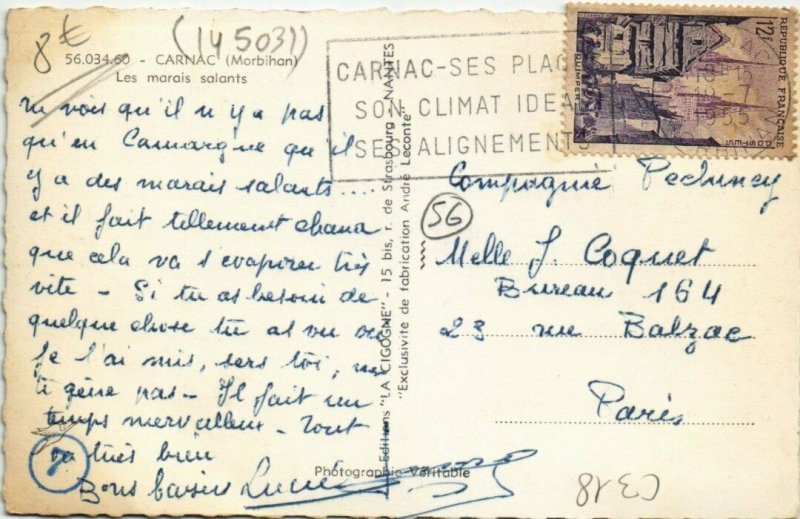 8€
(145031)
56.034.60 - CARNAC (Morbihan)
Les marais salants
Tu vois qu'il n'y a pas
qu'en Camargue qu'il
y a des marais salants....
et il fait tellement chaud
que cela va s'evaporer très
vite - Si tu as besoin de
quelque chose tu as vu où
je l'ai mis, sers toi, ne
te gêne pas - Il fait un
temps merveilleux - Tout
va très bien
Bons baisers Lucie
7
Editions "LA CIGOGNE" - 15 bis, r. de Strasbourg - NANTES
"Exclusivité de fabrication André Leconte"
Photographie Véritable
CARNAC-SES PLAG
SON CLIMAT IDEA
SES ALIGNEMENTS
12F
REPUBLIQUE FRANÇAISE
POSTES
QUIMPER
18-7
1955
Compagnie Pechiney
56
Melle J. Coquet
Bureau 164
23 rue Balzac
Paris
C318